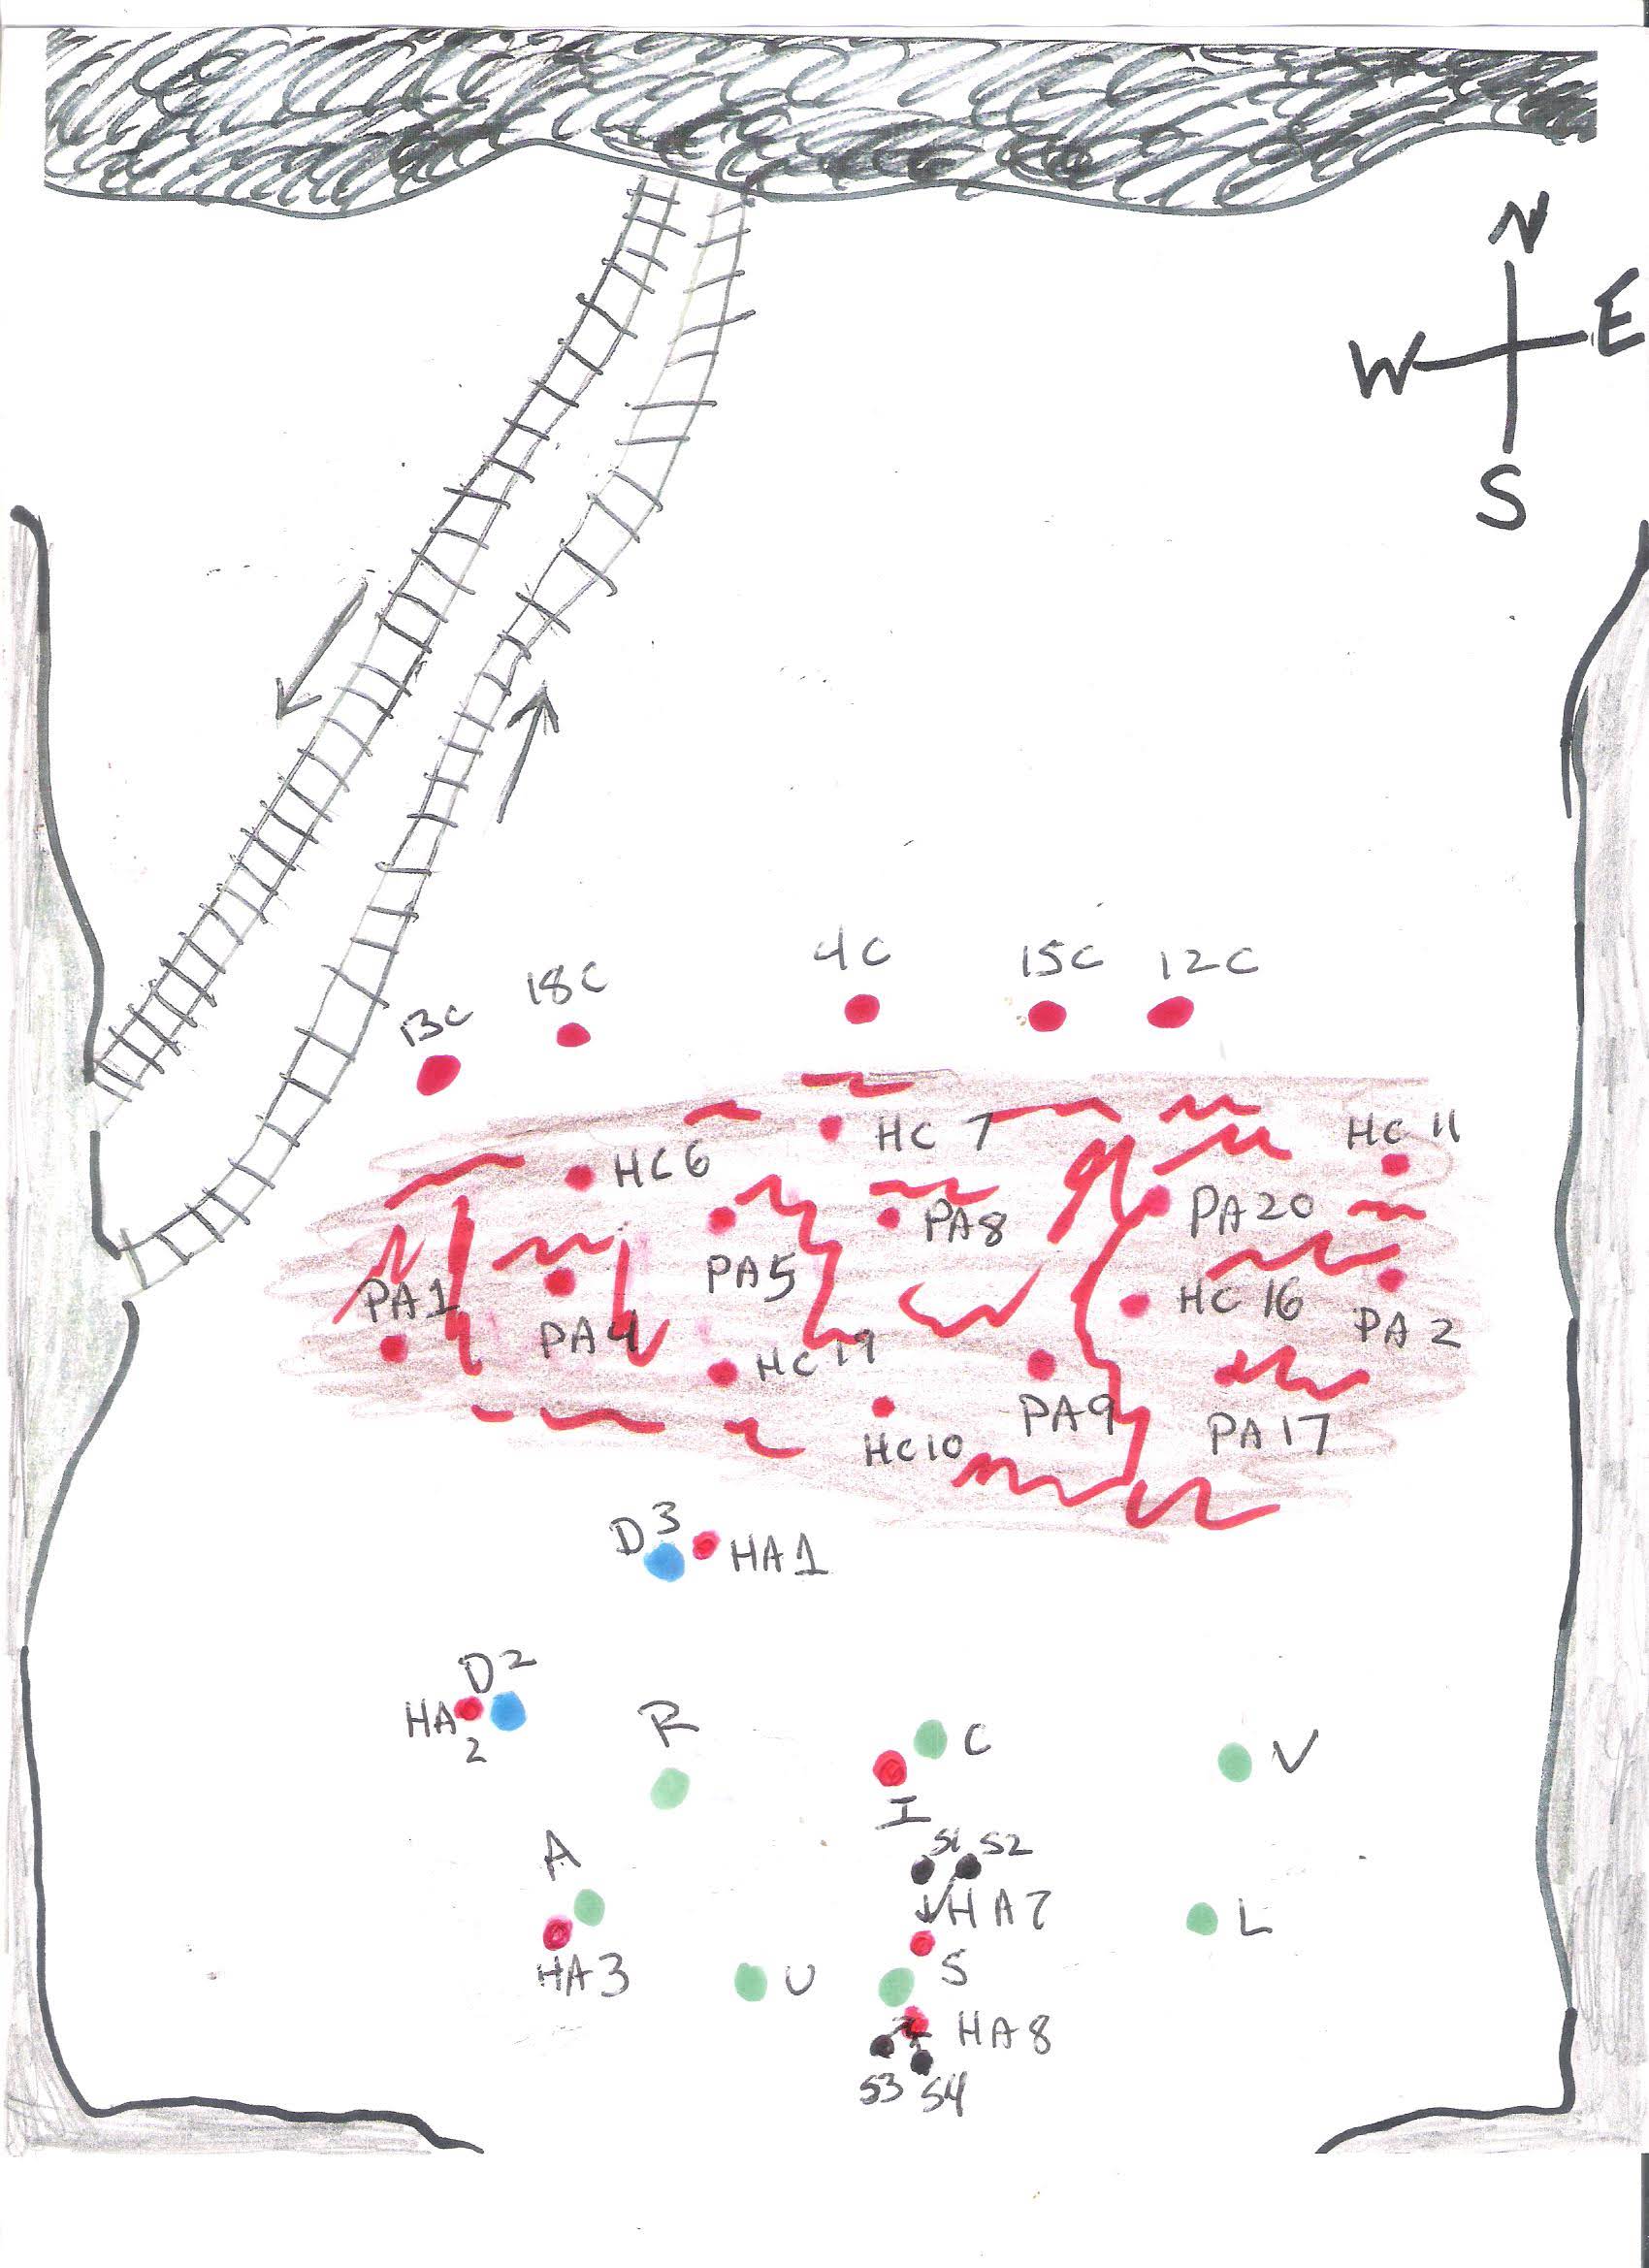 N
E
W
S
4C
15C
12C
18C
13C
HC 7
HC 11
HC6
PA20
PA8
PA5
HC 16
PA1
PA 2
PA4
HC 19
PA9
PA17
HC10
D3
HA1
D2
HA
2
R
C
V
I
S1 S2
A
HA7
L
S
HA3
U
HA8
S3 S4